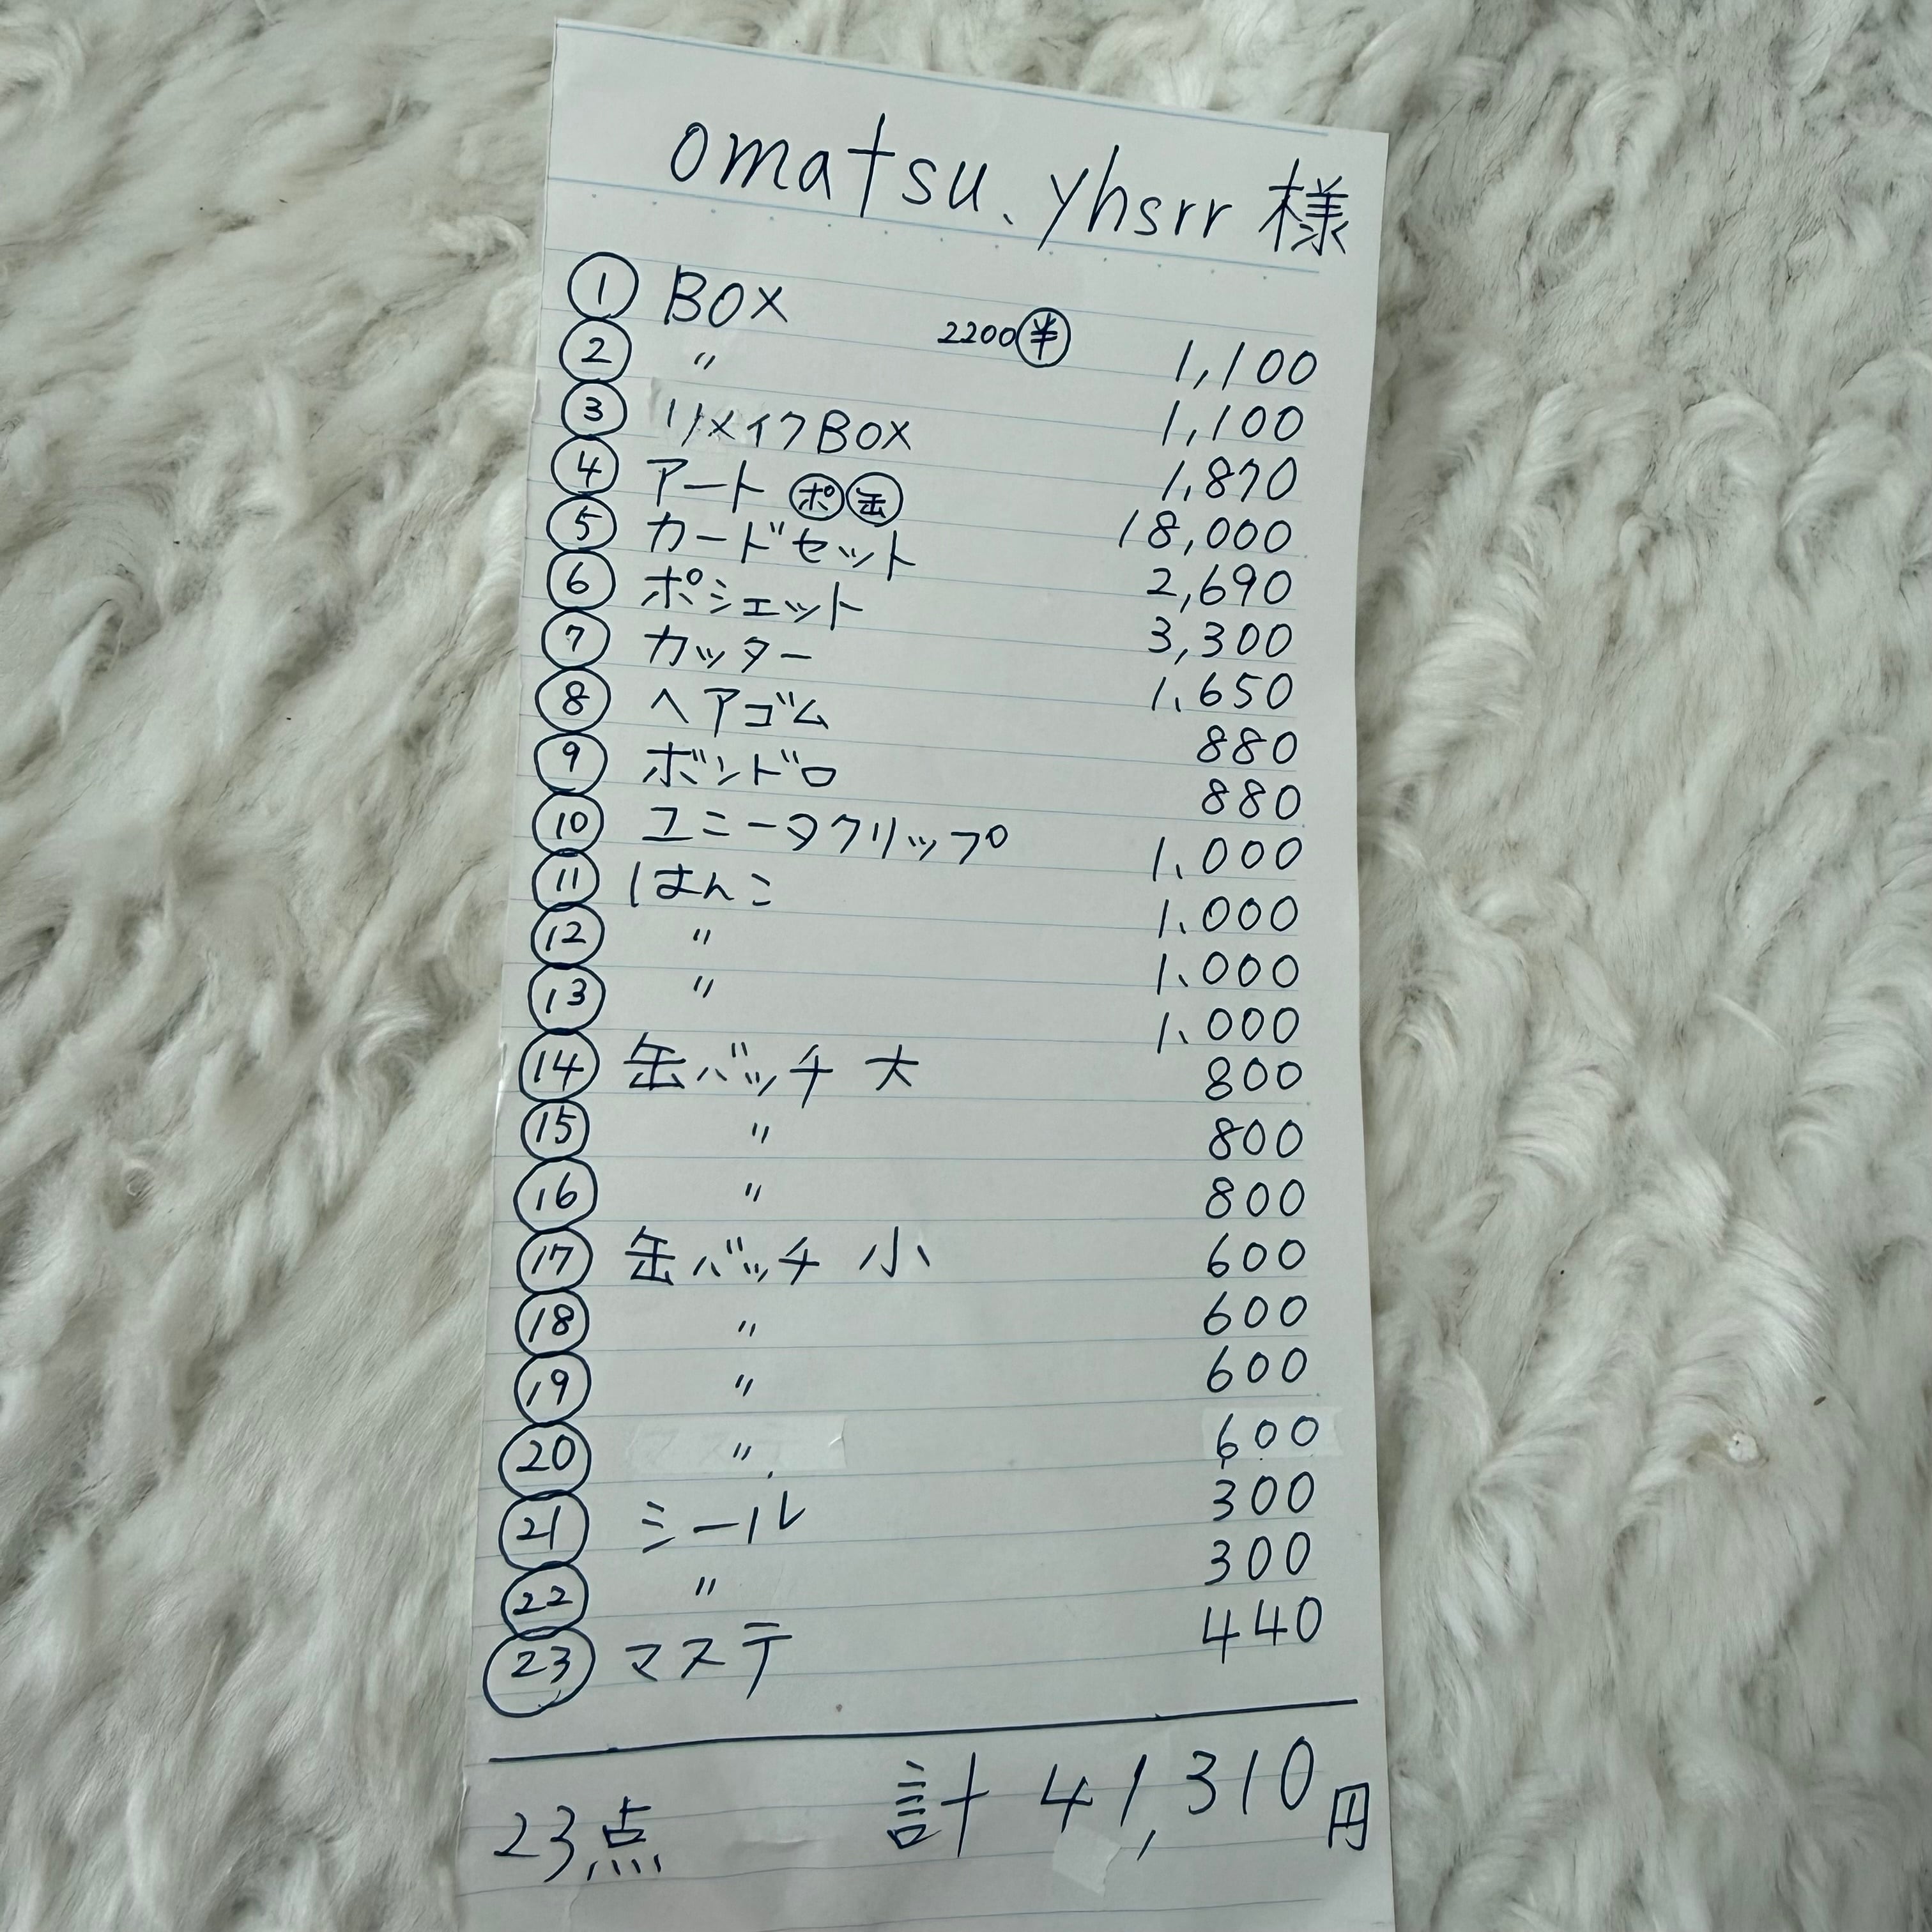 omatsu.yhsrr 様
① BOX 2200¥ 1,100
② 〃 1,100
③ リメイクBOX 1,870
④ アート ポ 缶 18,000
⑤ カードセット 2,690
⑥ ポシェット 3,300
⑦ カッター 1,650
⑧ ヘアゴム 880
⑨ ボンドロ 880
⑩ ユニータクリップ 1,000
⑪ はんこ 1,000
⑫ 〃 1,000
⑬ 〃 1,000
⑭ 缶バッチ 大 800
⑮ 〃 800
⑯ 〃 800
⑰ 缶バッチ 小 600
⑱ 〃 600
⑲ 〃 600
⑳ 〃 600
㉑ シール 300
㉒ 〃 300
㉓ マステ 440
23点 計 41,310円